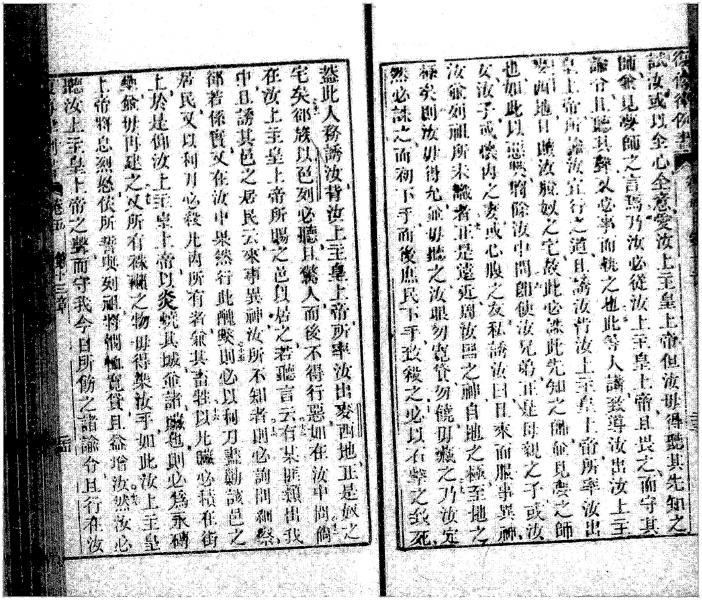 試汝或以全心全意愛汝上主皇上帝但汝毋得聽其先知之
師並見夢師之言焉乃汝必從汝上主皇上帝且畏之而守其
諭令且聽其聲又必事而執之也此等人講致導汝出汝上主
皇上帝所諭汝宜行之道且誘汝背汝上主皇上帝所率汝出
麥西地且贖汝脫奴之宅故此必誅此先知之師並見夢之師
也如此以惡與將除汝中間卽使汝兄弟正是母親之子或汝
女汝子或懷內之妻或心腹之友私誘汝曰且來而服事異神
汝並列祖所未識者正是遠近周汝四之神自地之極至地之
極矣則汝毋得允並毋聽之汝眼勿寬貸勿饒毋藏之乃汝定
然必誅之而初下手而後庶民下手致殺之必以石擊之致死
蓋此人務誘汝背汝上主皇上帝所率汝出麥西地正是奴之
宅矣卻族以色列必聽且驚人而後不得行惡如在汝中間倘
在汝上主皇上帝所賜之邑以居之若聽言云有某匪類出我
中且誘其邑之居民云來事異神汝所不知者則必詢問細察
卻若係實又在汝中果然行此醜獘則必以利刀盡勦該邑之
居民又以利刀必殺凡內所有者並其畜牲以凡贓必積在街
上於是仰汝上主皇上帝以炎燒其城並諸贓也則必爲永磚
壘並毋再建之又所有穢褻之物毋得染汝手如此汝上主皇
上帝將息烈怒依所誓與列祖將憫恤寬貸且益增汝然汝必
聽汝上主皇上帝之聲而守我今日所飭之諸諭令且行在汝
卷五 第十三章